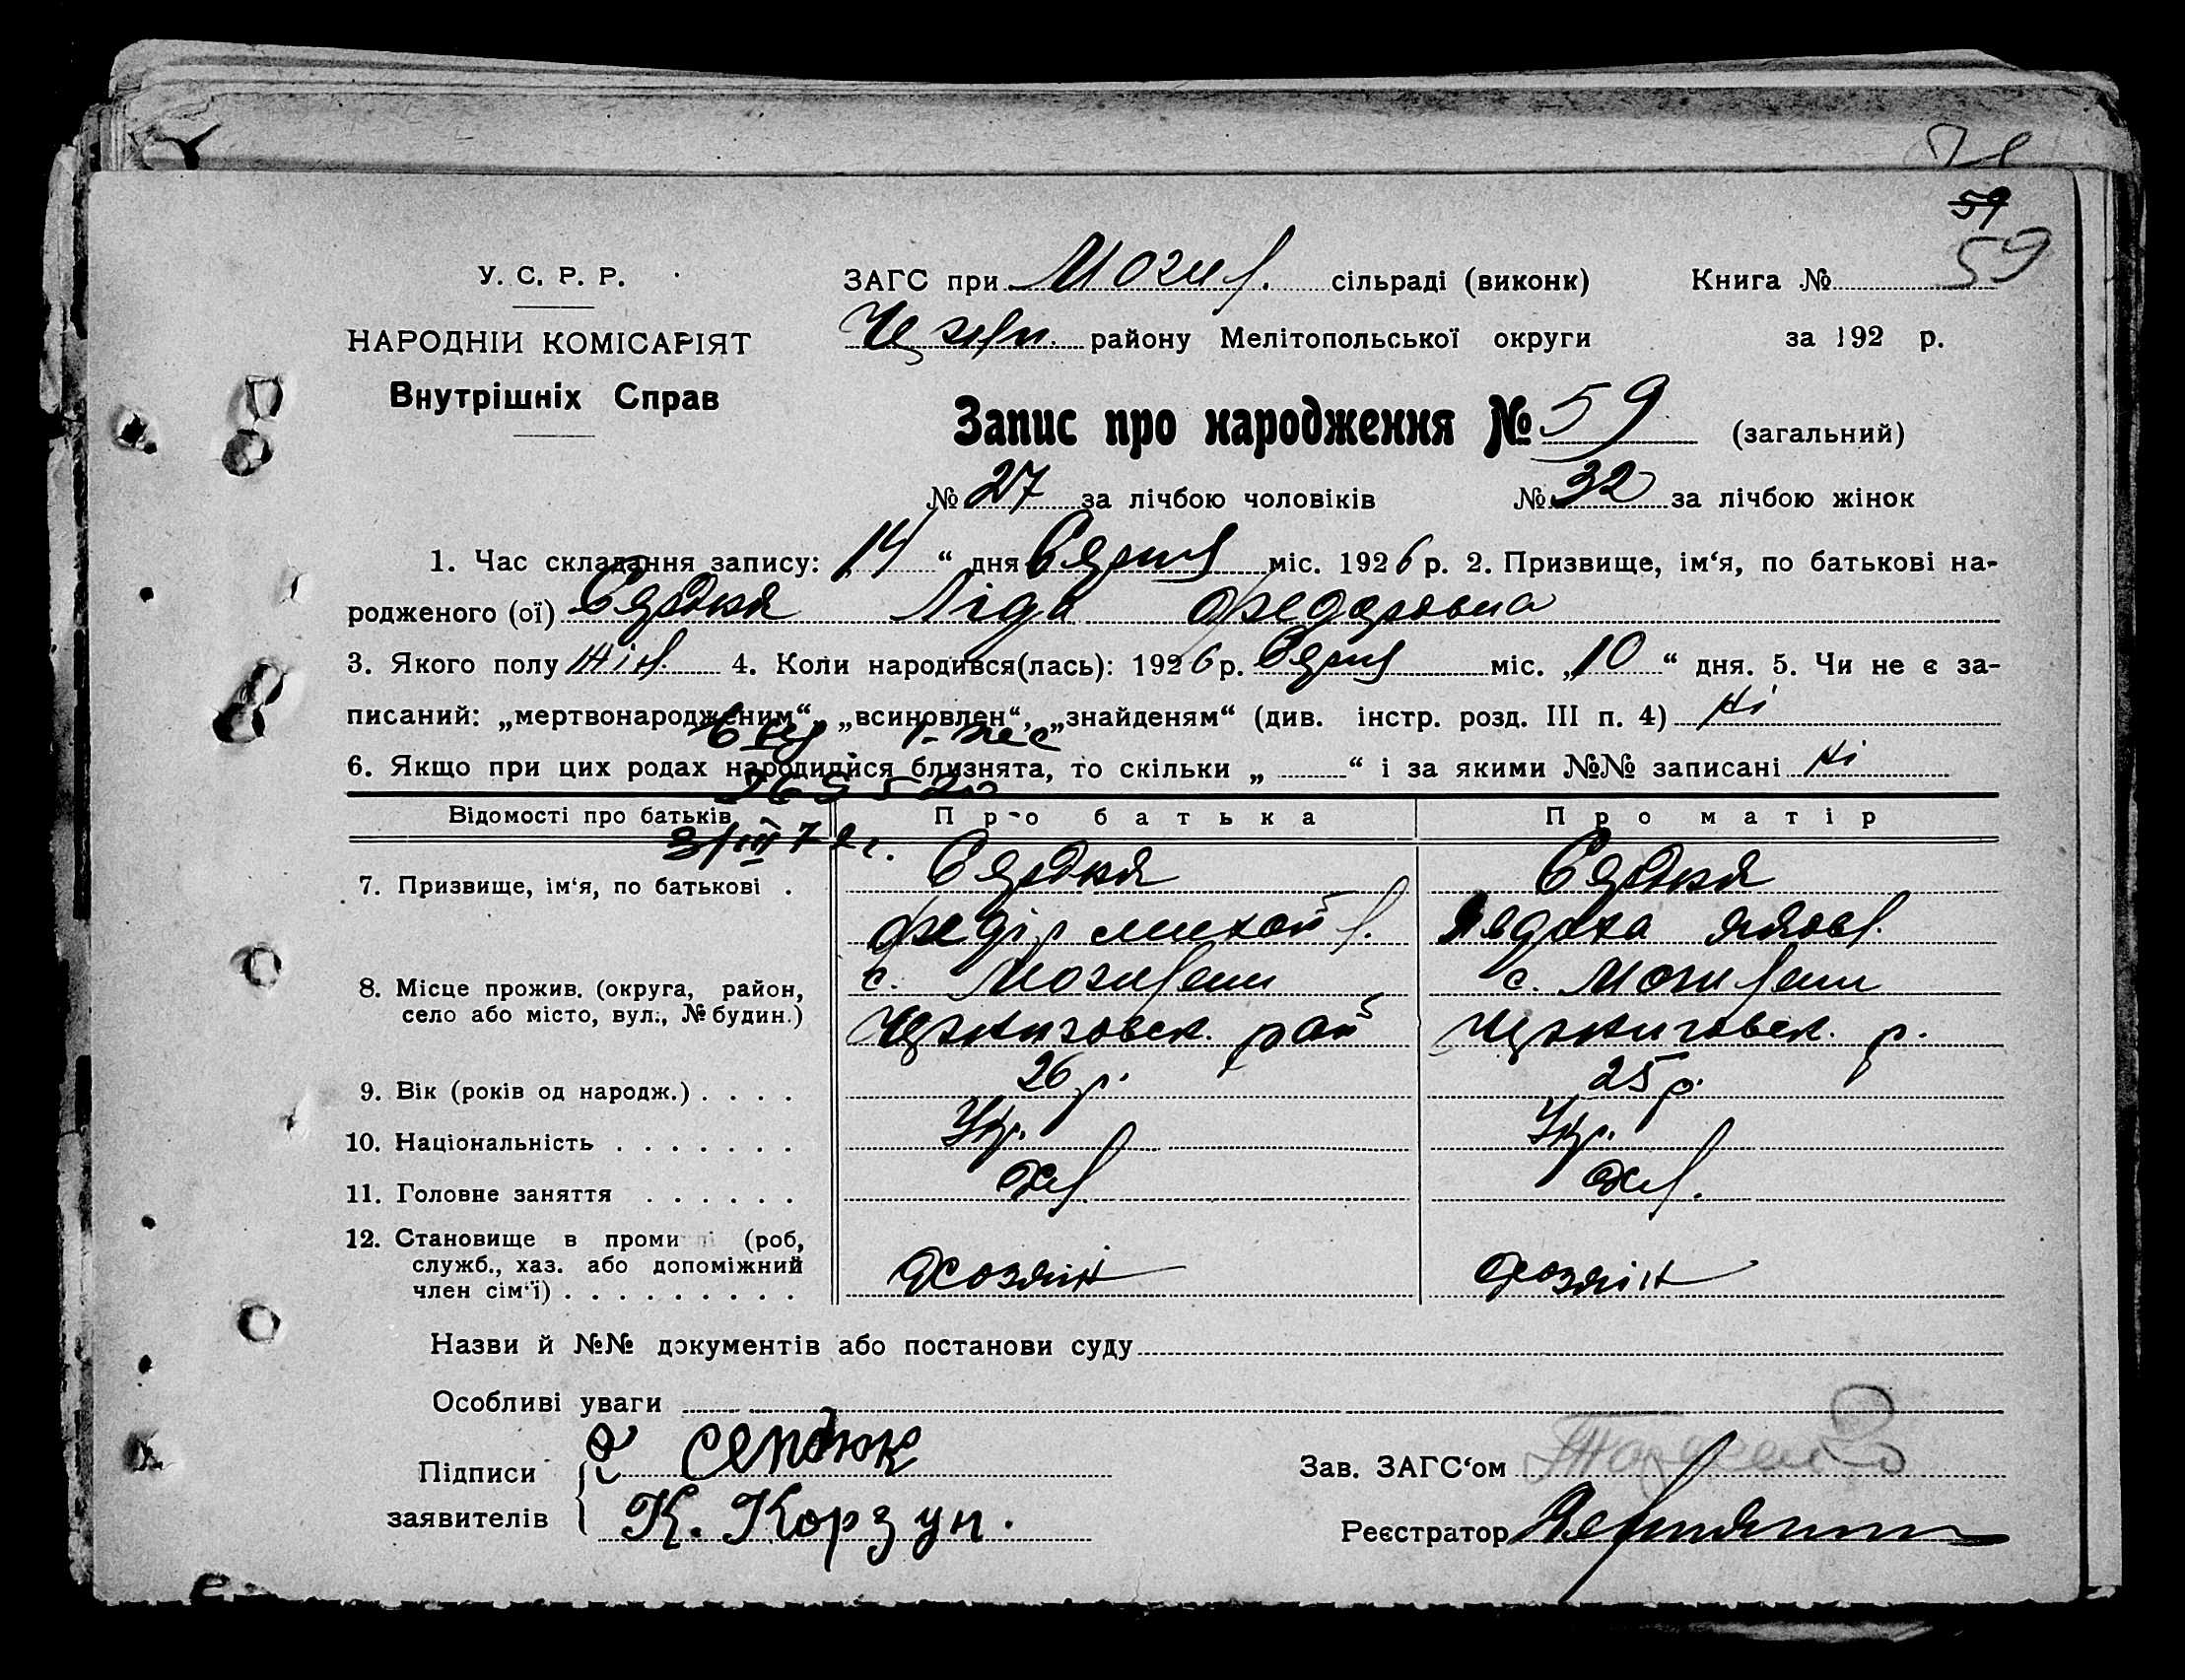 59
59
У. С. Р. Р.
НАРОДНІЙ КОМІСАРІЯТ
Внутрішніх Справ
ЗАГС при Могил. сільраді (виконк) Книга №
району Мелітопольської округи за 192 р.
Запис про народження № 59 (загальний)
№ 27 за лічбою чоловіків № 32 за лічбою жінок
1. Час складання запису: „14“ дня Серпня міс. 1926 р. 2. Призвище, ім‘я, по батькові на-
родженого (ої) Ліда Федоровна
3. Якого полу жін. 4. Коли народився(лась): 1926 р. Серпня міс. „10“ дня. 5. Чи не є за-
писаний: „мертвонародженим“, „всиновлен“, „знайденям“ (див. інстр. розд. III п. 4) Ні
6. Якщо при цих родах народилися близнята, то скільки „ “ і за якими №№ записані Ні
Відомості про батьків Про батька Про матір
7. Призвище, ім‘я, по батькові .
Федір Михайл. Явдоха Яковл.
8. Місце прожив. (округа, район, с. Могиляни с. Могиляни
село або місто, вул., № будин.) рай р.
9. Вік (років од народж.) . . . . 26 р. 25 р.
10. Національність . . . . . . . Укр. Укр.
11. Головне заняття . . . . . . Хл. Хл.
12. Становище в проми (роб,
служб., хаз. або допоміжний Хозяін Хозяін
член сім‘ї) . . . . . . . . .
Назви й №№ документів або постанови суду
Особливі уваги
Підписи Зав. ЗАГС‘ом
заявителів К. Корзун. Реєстратор